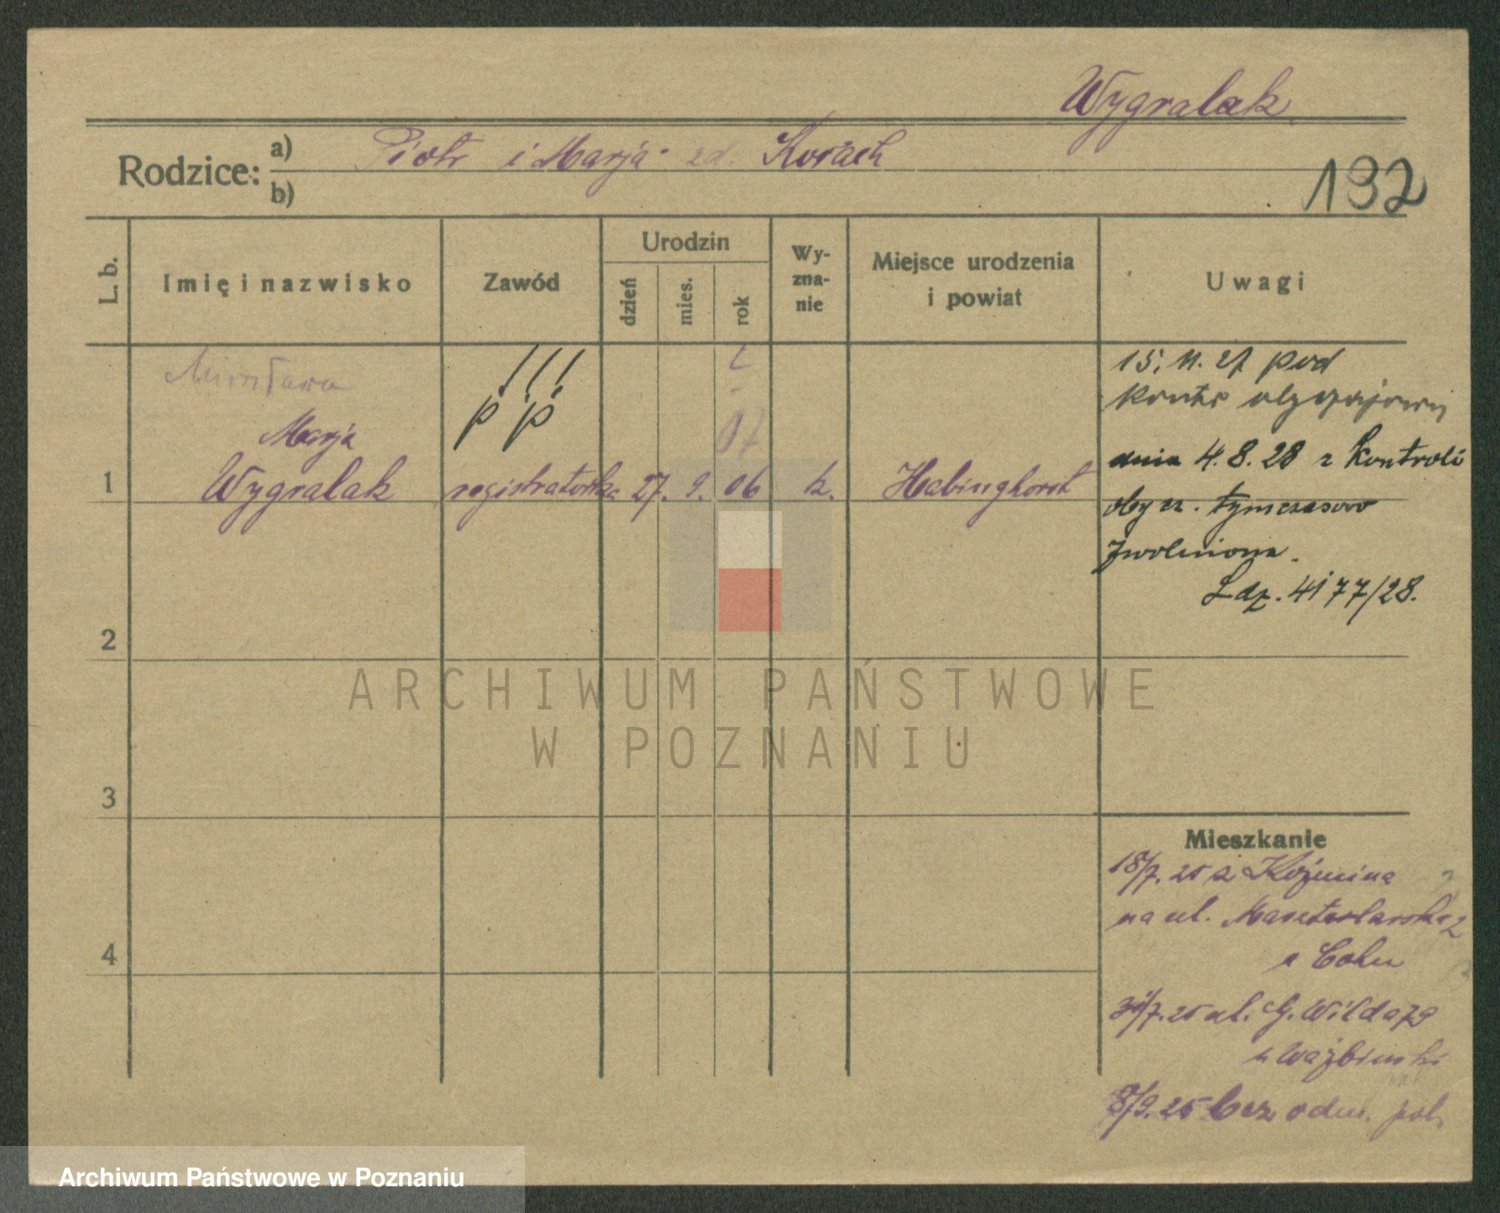 Wygralak
Rodzice: a) Piotr i Marja zd. Korach
b)
132
L. b.
Imię i nazwisko
Zawód
Urodzin
dzień
mies.
rok
Wy-
zna-
nie
Miejsce urodzenia
i powiat
Uwagi
Mirosława
Marja
1 Wygralak registratorka 27. 9. 06 k. Habinghorst
!!!
p. p.
07
15. 11. 27 pod
kontr obyczajową
dnia 4.8.28 z Kontroli
obycz. tymczasowo
zwolniona.
Ldz. 4177/28.
2
3
4
Mieszkanie
18/7.25 z Koźmina
na ul. Masztalarska 2
u Cohn
30/7.25 ul. G. Wilda 79
u Ważbinski
8/9.25 bez odm. pol.
ARCHIWUM PAŃSTWOWE
W POZNANIU
Archiwum Państwowe w Poznaniu